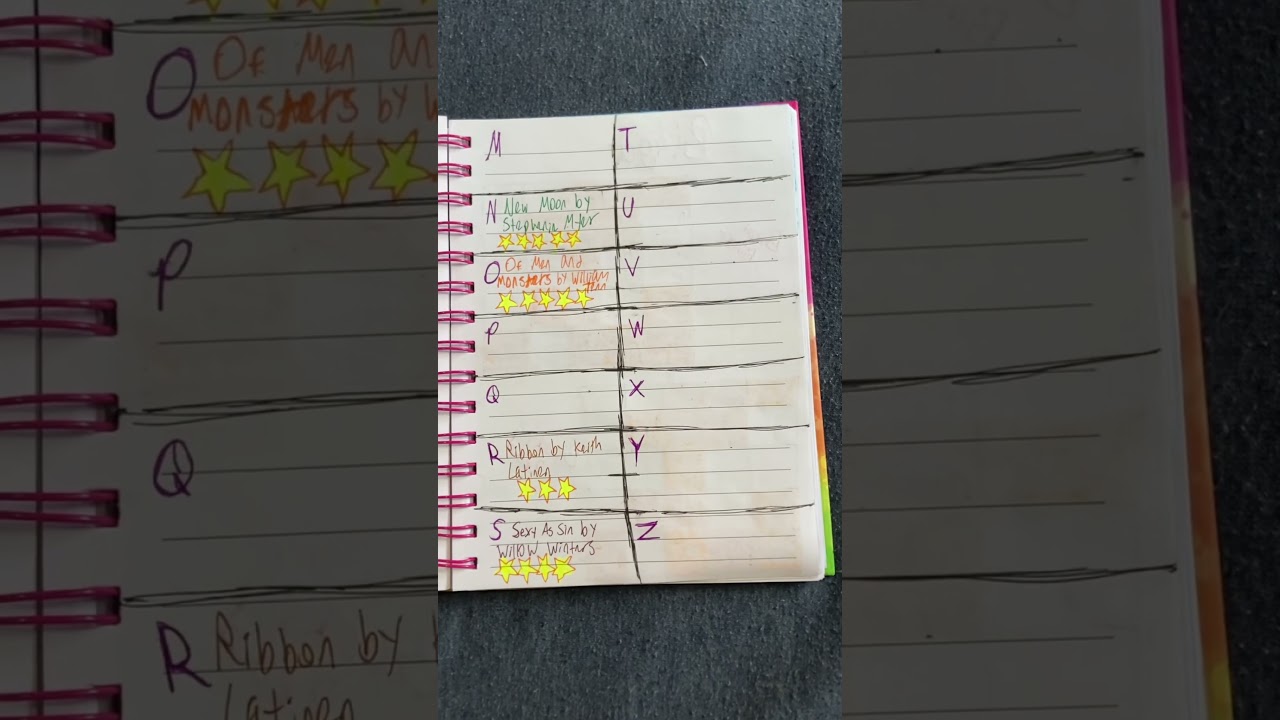 M
N New Moon by
Stephenie
O Of Men and
Monsters by William
P
Q
R Ribbon by Keith
Latinen
S Sexy As Sin by
Willow Winters
T
U
V
W
X
Y
Z
O Of Men
Monsters by
P
Q
R Ribbon by
Latinen